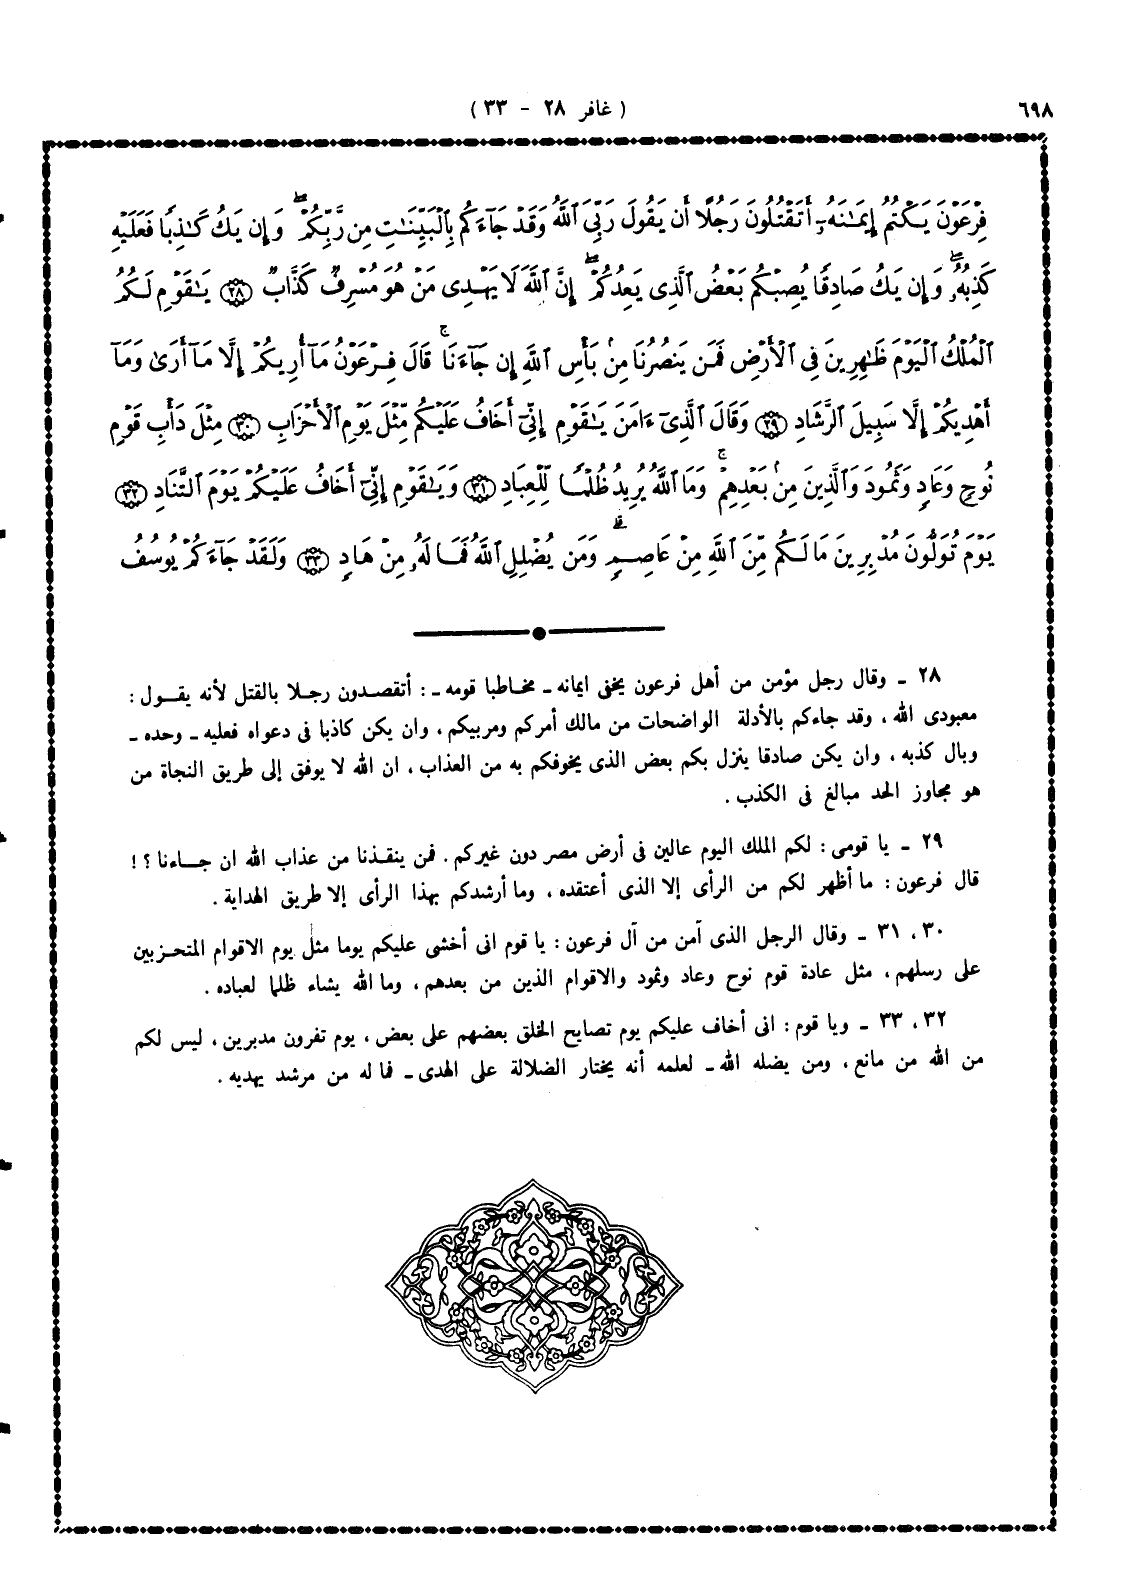 ٦٩٨
( غافر ٢٨ - ٣٣ )
فِرْعَوْنَ يَكْتُمُ إِيمَٰنَهُۥٓ أَتَقْتُلُونَ رَجُلًا أَن يَقُولَ رَبِّىَ ٱللَّهُ وَقَدْ جَآءَكُم بِٱلْبَيِّنَٰتِ مِن رَّبِّكُمْ ۖ وَإِن يَكُ كَٰذِبًا فَعَلَيْهِ
كَذِبُهُۥ ۖ وَإِن يَكُ صَادِقًا يُصِبْكُم بَعْضُ ٱلَّذِى يَعِدُكُمْ ۖ إِنَّ ٱللَّهَ لَا يَهْدِى مَنْ هُوَ مُسْرِفٌ كَذَّابٌ ٢٨ يَٰقَوْمِ لَكُمُ
ٱلْمُلْكُ ٱلْيَوْمَ ظَٰهِرِينَ فِى ٱلْأَرْضِ فَمَن يَنصُرُنَا مِنۢ بَأْسِ ٱللَّهِ إِن جَآءَنَا ۚ قَالَ فِرْعَوْنُ مَآ أُرِيكُمْ إِلَّا مَآ أَرَىٰ وَمَآ
أَهْدِيكُمْ إِلَّا سَبِيلَ ٱلرَّشَادِ ٢٩ وَقَالَ ٱلَّذِىٓ ءَامَنَ يَٰقَوْمِ إِنِّىٓ أَخَافُ عَلَيْكُم مِّثْلَ يَوْمِ ٱلْأَحْزَابِ ٣٠ مِثْلَ دَأْبِ قَوْمِ
نُوحٍ وَعَادٍ وَثَمُودَ وَٱلَّذِينَ مِنۢ بَعْدِهِمْ ۚ وَمَا ٱللَّهُ يُرِيدُ ظُلْمًا لِّلْعِبَادِ ٣١ وَيَٰقَوْمِ إِنِّىٓ أَخَافُ عَلَيْكُمْ يَوْمَ ٱلتَّنَادِ ٣٢
يَوْمَ تُوَلُّونَ مُدْبِرِينَ مَا لَكُم مِّنَ ٱللَّهِ مِنْ عَاصِمٍ ۗ وَمَن يُضْلِلِ ٱللَّهُ فَمَا لَهُۥ مِنْ هَادٍ ٣٣ وَلَقَدْ جَآءَكُمْ يُوسُفُ
٢٨ ـ وقال رجل مؤمن من أهل فرعون يخفى ايمانه ـ مخاطبا قومه ـ : أتقصدون رجلا بالقتل لأنه يقول :
معبودى الله ، وقد جاءكم بالأدلة الواضحات من مالك أمركم ومربيكم ، وان يكن كاذبا فى دعواه فعليه ـ وحده ـ
وبال كذبه ، وان يكن صادقا ينزل بكم بعض الذى يخوفكم به من العذاب ، ان الله لا يوفق إلى طريق النجاة من
هو مجاوز الحد مبالغ فى الكذب .
٢٩ ـ يا قومى : لكم الملك اليوم عالين فى أرض مصر دون غيركم . فمن ينقذنا من عذاب الله ان جاءنا ؟ !
قال فرعون : ما أظهر لكم من الرأى إلا الذى أعتقده ، وما أرشدكم بهذا الرأى إلا طريق الهداية .
٣٠ ، ٣١ ـ وقال الرجل الذى آمن من آل فرعون : يا قوم انى أخشى عليكم يوما مثل يوم الاقوام المتحزبين
على رسلهم ، مثل عادة قوم نوح وعاد وثمود والاقوام الذين من بعدهم ، وما الله يشاء ظلما لعباده .
٣٢ ، ٣٣ ـ ويا قوم : انى أخاف عليكم يوم تصايح الخلق بعضهم على بعض ، يوم تفرون مدبرين ، ليس لكم
من الله من مانع ، ومن يضله الله ـ لعلمه أنه يختار الضلالة على الهدى ـ فما له من مرشد يهديه .